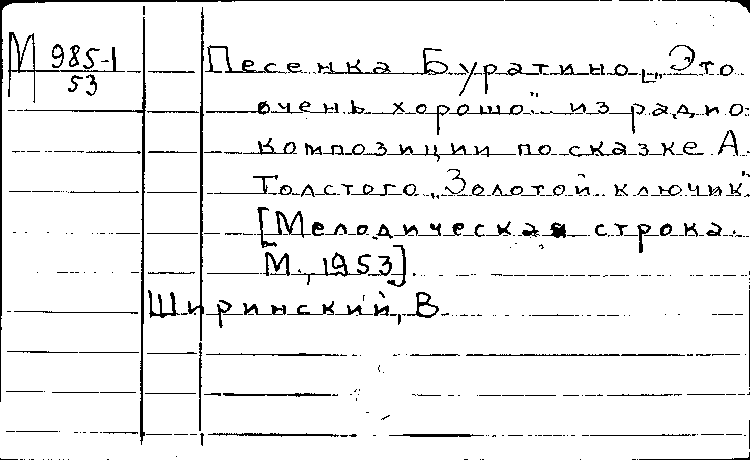 М 985-1
53
Песенка Буратино „Это
очень хорошо" из радио-
композиции по сказке А.
Толстого „Золотой ключик"
[Мелодическая строка.
М., 1953].
Ширинский, В.